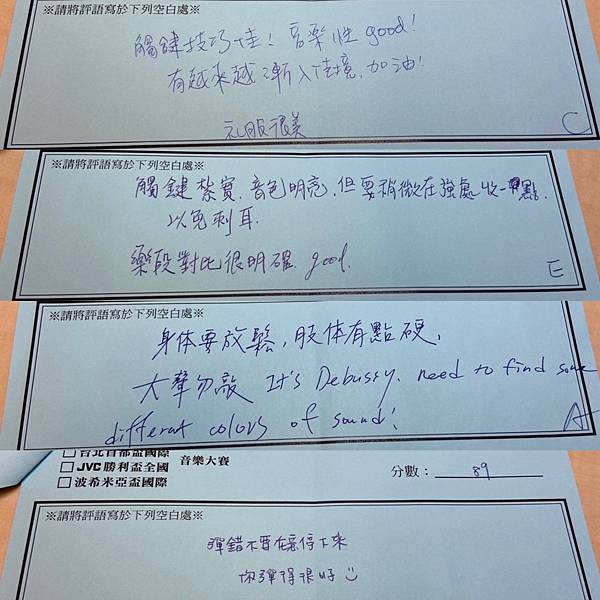 ※請將評語寫於下列空白處※
觸鍵技巧佳！音樂性good!
有越來越漸入佳境，加油！
礼服很美
C
※請將評語寫於下列空白處※
觸鍵紮實，音色明亮，但要稍微在強處收一點，
以免刺耳。
樂段對比很明確，good.
E
※請將評語寫於下列空白處※
身体要放鬆，肢体有點硬，
大聲勿敲 It's Debussy. need to find some
different colors of sound!
A
□台北首都盃國際
□JVC勝利盃全國
□波希米亞盃國際
音樂大賽
分數：89
※請將評語寫於下列空白處※
彈錯不要在意停下來
你彈得很好